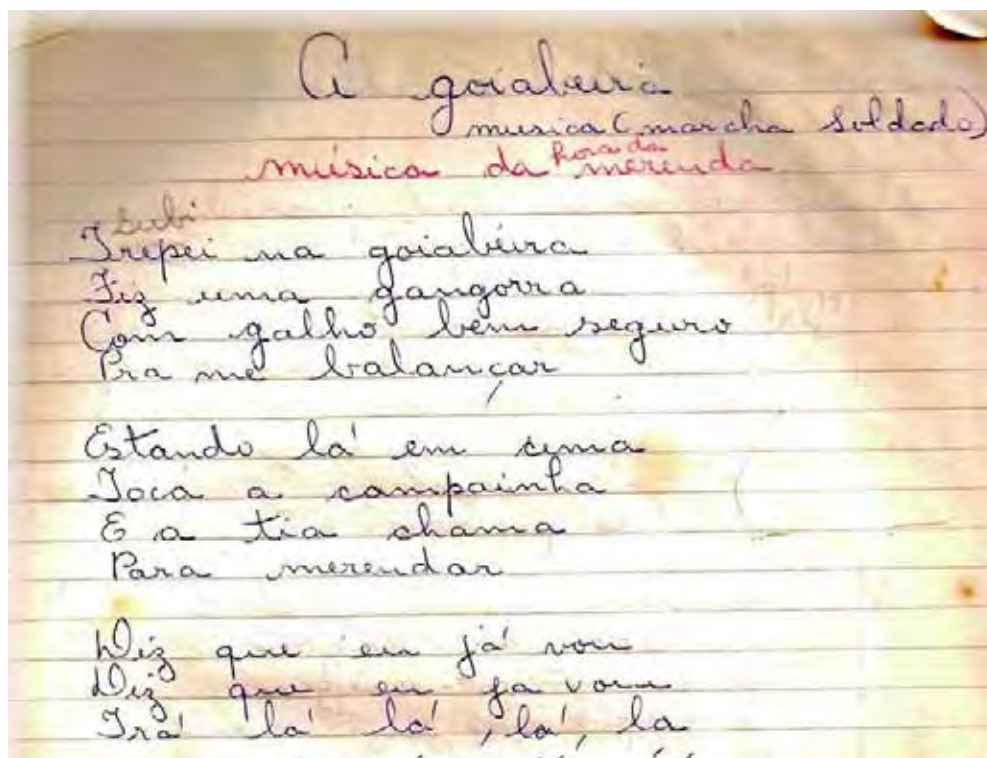 A goiabeira
musica (marcha soldado)
música da hora da merenda
subi
Trepei na goiabeira
Fiz uma gangorra
Com galho bem seguro
Pra me balançar
Estando lá em cima
Toca a campainha
E a tia chama
Para merendar
Diz que eu já vou
Diz que eu ja vou
Trá lá lá, lá, la